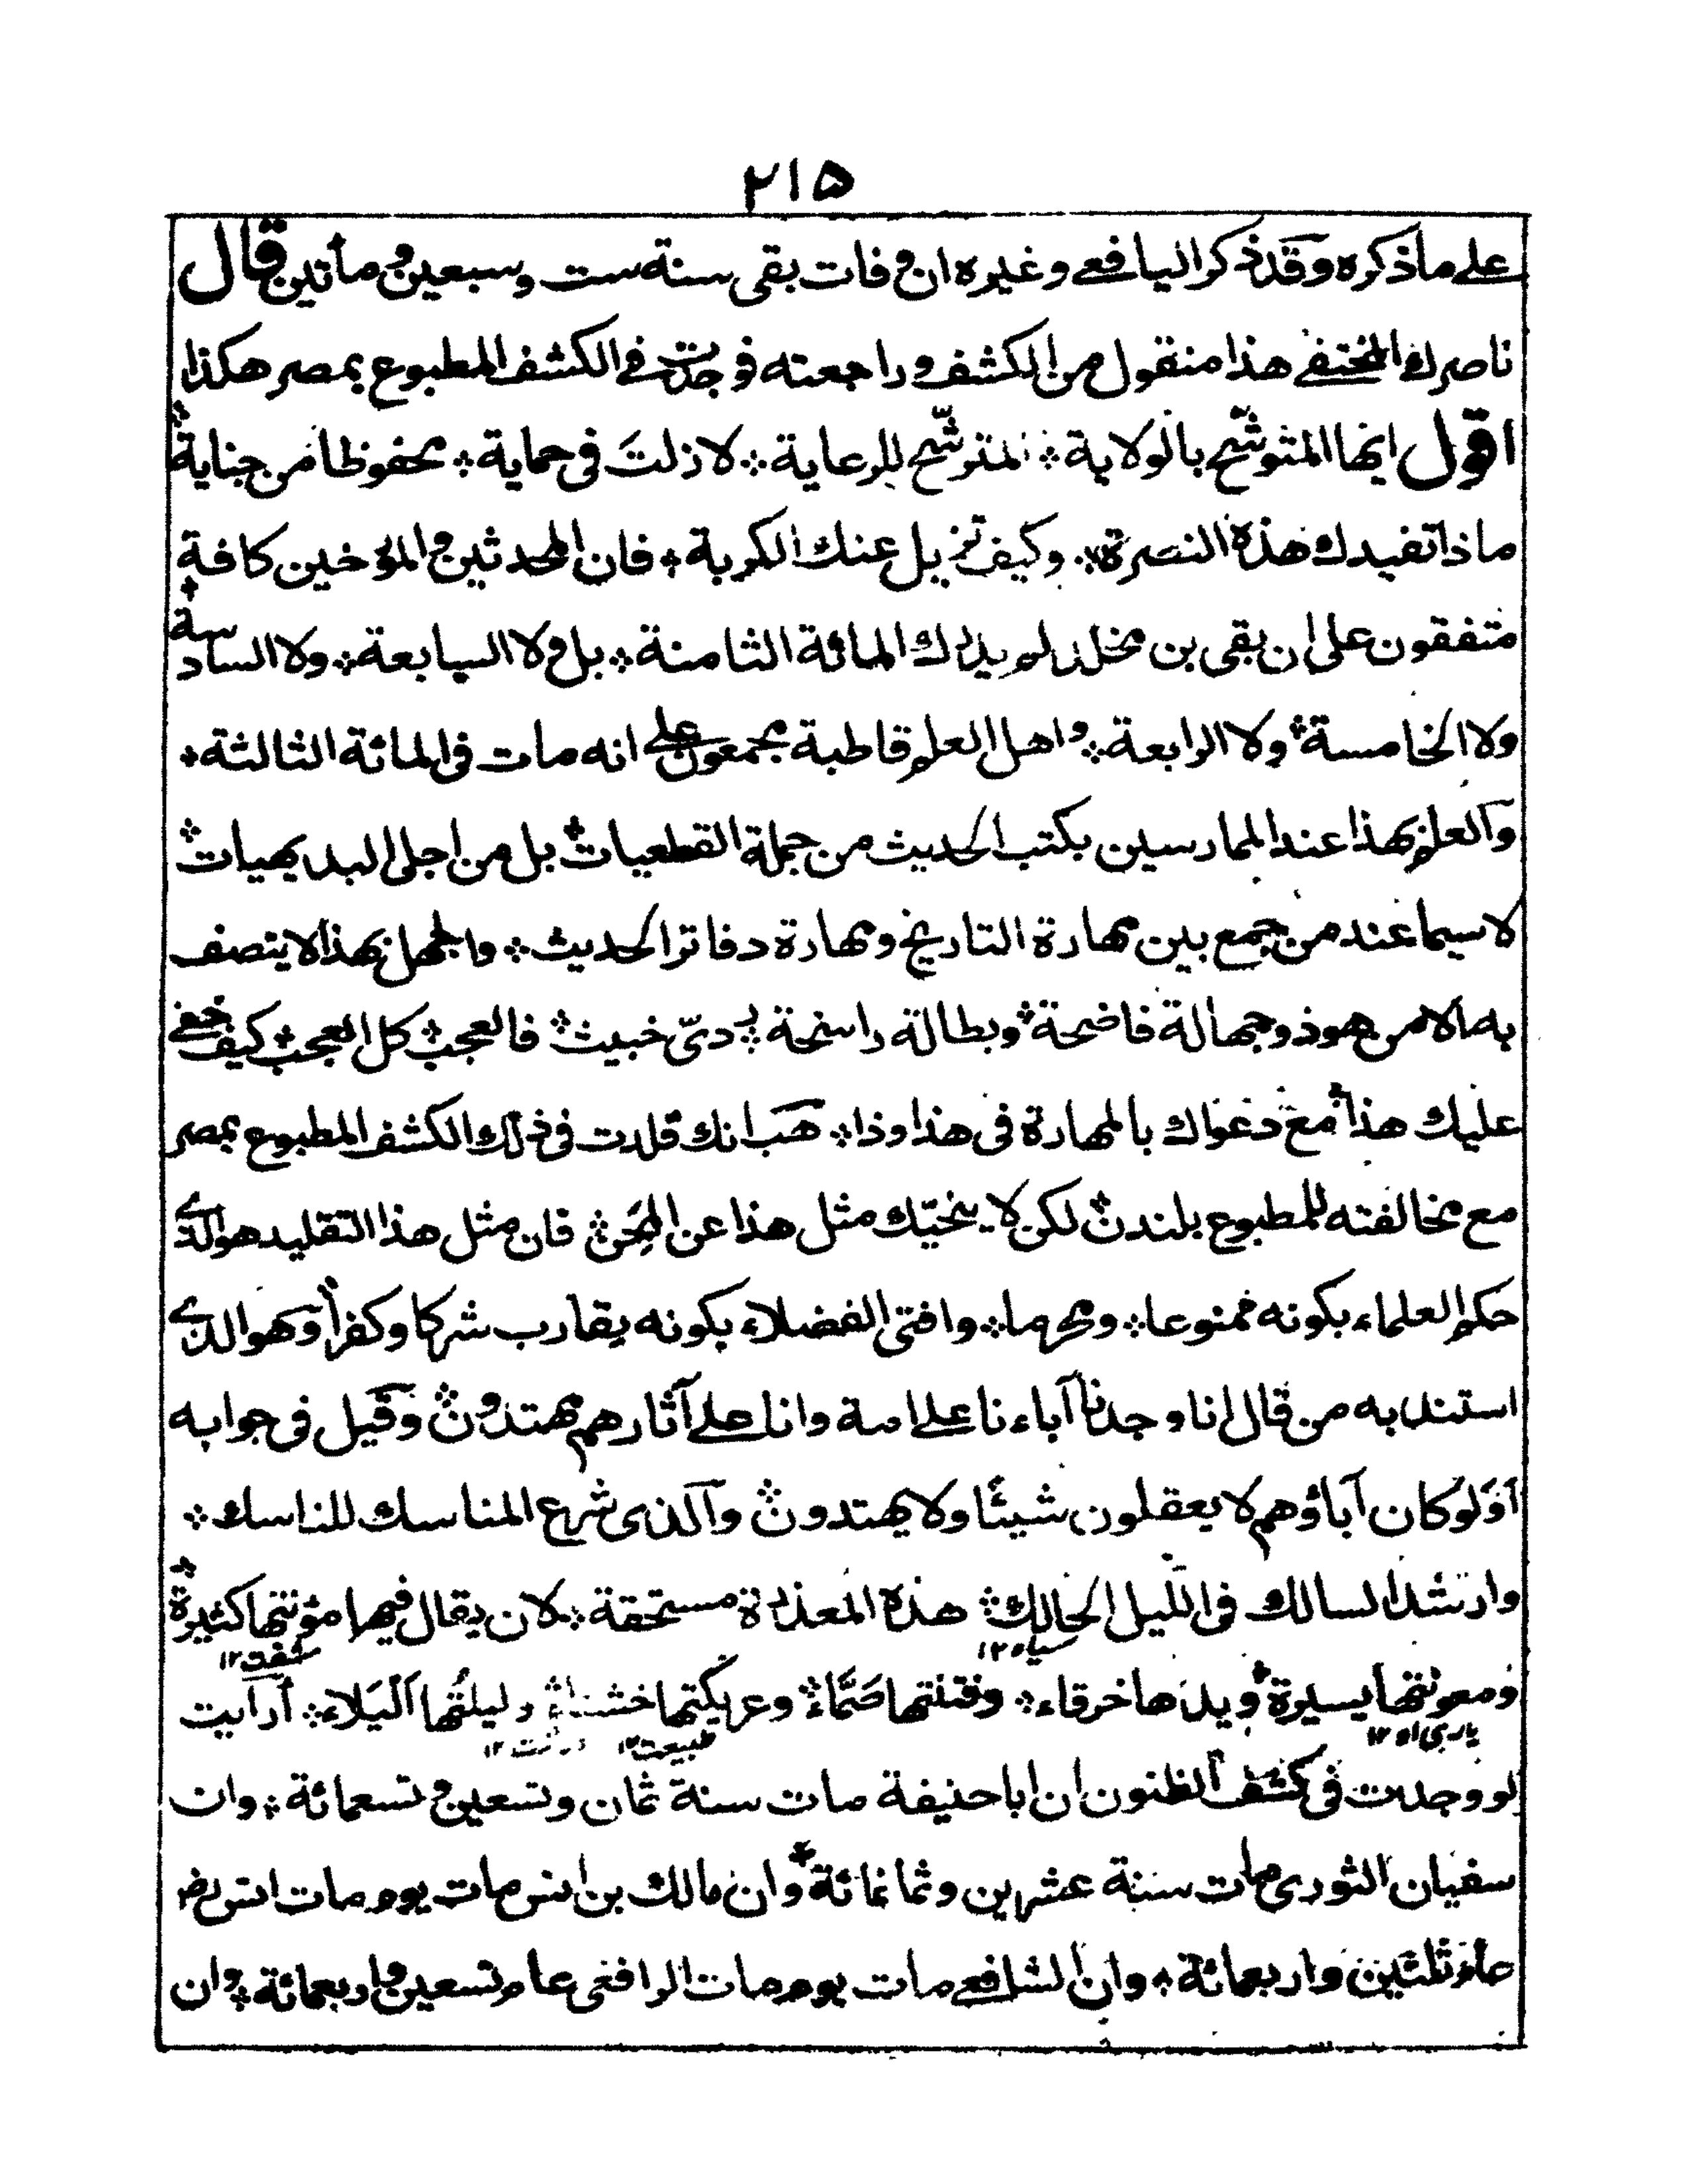 ٢١٥
على ما ذكره وقد ذكر اليافعي وغيره ان وفات بقى سنة ست وسبعين ومأتين قال
ناصرك المختفى هذا منقول من الكشف وراجعته فوجدت في الكشف المطبوع بمصر هكذا
اقول ايها المتوشح بالولاية ؞ المترشح للرعاية ؞ لا زلتَ فى حماية ؞ محفوظا من جناية ؞
ماذا تفيدك هذه النصرة ؞ وكيف تزيل عنك الكربة ؞ فان المحدثين والمؤرخين كافة ؞
متفقون على ان بقى بن مخلد لم يدرك المائة الثامنة ؞ بل ولا السابعة ؞ ولا السادسة
ولا الخامسة ؞ ولا الرابعة ؞ واهل العلم قاطبة مجمعون على انه مات فى المائة الثالثة ؞
والعلم بهذا عند الممارسين بكتب الحديث من جملة القطعيات ؞ بل من اجلى البديهيات ؞
لا سيما عند من جمع بين مهارة التاريخ ومهارة دفاتر الحديث ؞ والجهل بهذا لا يتصف
به الا من هو ذو جهالة فاضحة ؞ وبطالة راسخة ؞ ردىّ خبيث ؞ فالعجب ؞ كل العجب ؞ كيف خفى
عليك هذا ؞ مع دعواك بالمهارة فى هذا وذا ؞ هَب انك قلدت فى ذلك الكشف المطبوع بمصر
مع مخالفته للمطبوع بلندن ؞ لكن لا ينجّيك مثل هذا عن المِحَن ؞ فان مثل هذا التقليد هو الذى
حكم العلماء بكونه ممنوعا ؞ ومحرما ؞ وافتى الفضلاء بكونه يقارب شركا وكفرا ؞ وهو الذى
استند به من قال انا وجدنا آباءنا على امة وانا على آثارهم مهتدون ؞ وقيل فى جوابه
أَوَلَو كان آباؤهم لا يعقلون شيئًا ولا يهتدون ؞ والذى شرع المناسك للناسك ؞
وارشد السالك فى الليل الحالك ؞ هذه المعذرة مستحقة ؞ لان يقال فيها مؤنتها كثيرة ؞
سياه ١٢ سخت ١٢
ومعونتها يسيرة ؞ ويدها خرقاء ؞ وفتنتها صَمّاء ؞ وعريكتها خشناء ؞ وليلتُها اَلْيَلاء ؞ أرأيت
ياربى او ١٢ طبيعت ١٢ درشت ١٢
لو وجدت فى كشف الظنون ان ابا حنيفة مات سنة ثمان وتسعين وتسعمائة ؞ وان
سفيان الثورى مات سنة عشرين وثمانمائة ؞ وان مالك بن انس مات يوم مات انس
عام ثلثين واربعمائة ؞ وان الشافعي مات يوم مات الرافعى عام تسعين واربعمائة ؞ وان